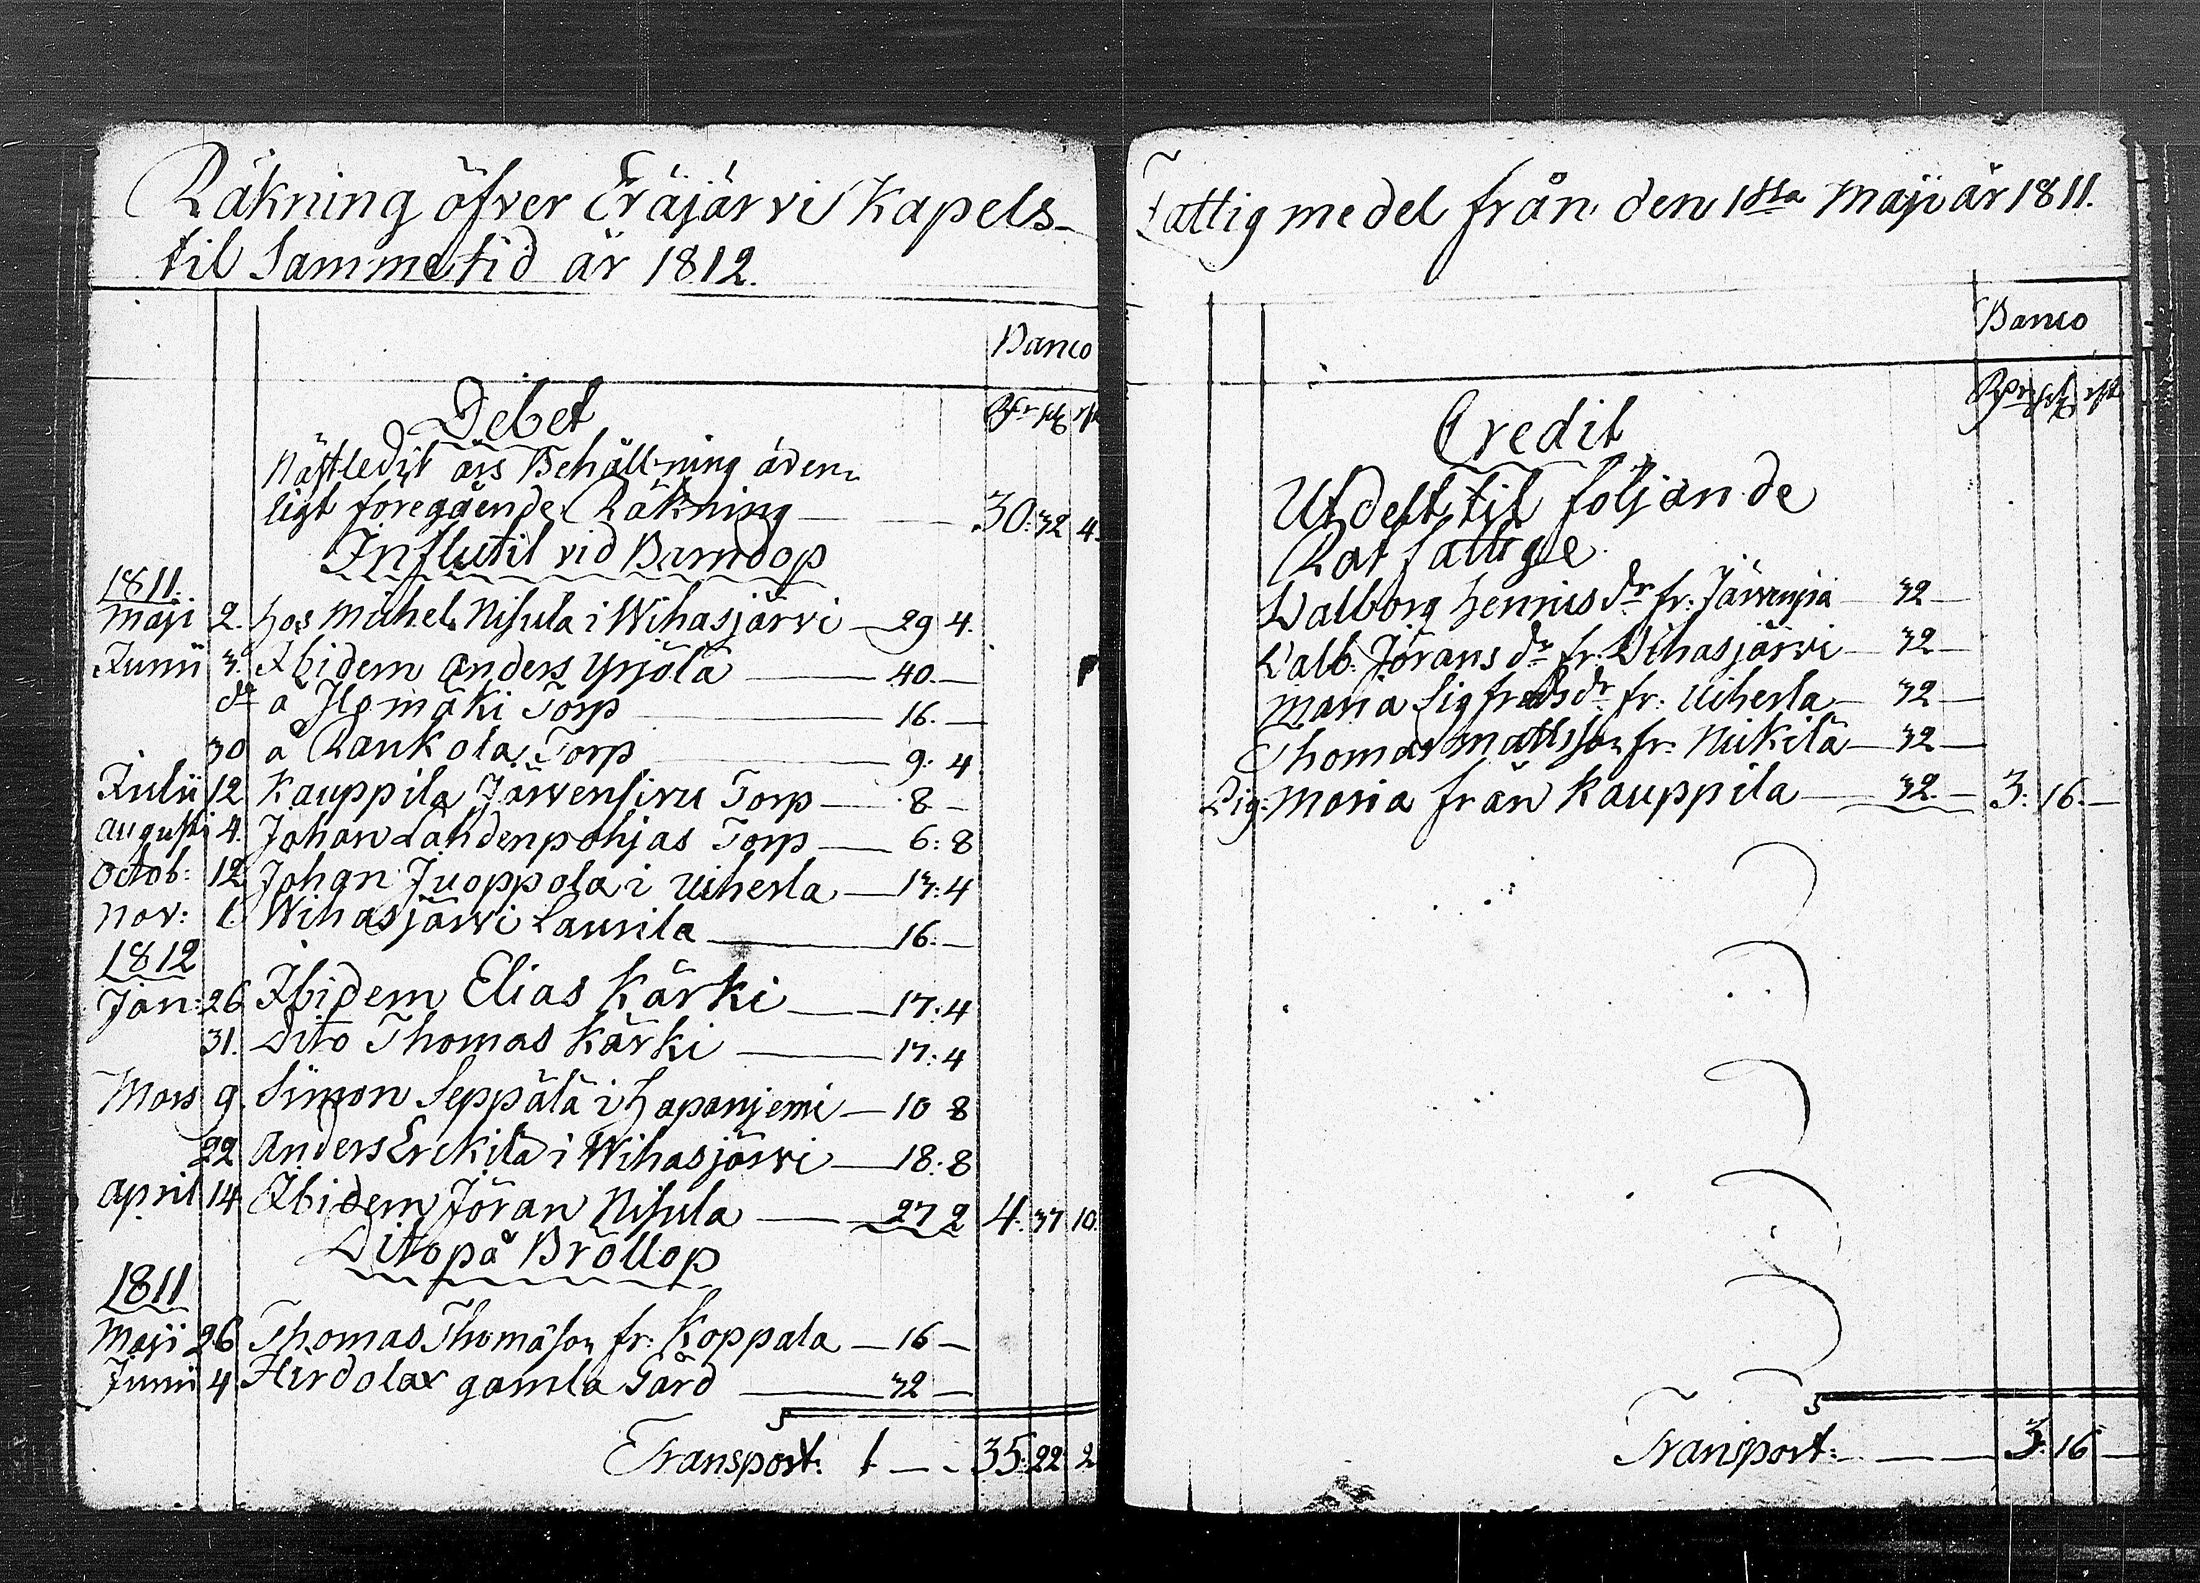 Räkning öfver Eräjärvi Kapels-
til Samme tid år 1812.
Banco
Debet
Rdr sk rst
Nästledit års Behållning även-
ligt foregående Räkning 30: 32 4.
Influtit vid Barndop
1811.
Maji 2. hos Mikel Nisula i Wihasjärvi 29 4.
Junii 3. Ibidem Anders Yrjölä 40. —
do å Ilomäki Torp 16. —
30 å Rankola Torp 9: 4
Julii 12 Kauppila Järvensivu Torp 8 —
Augusti 4. Johan Lahdenpohjas Torp 6: 8
Octob: 12 Johan Juoppola i Uiherla 13: 4
Nov: 6 Wihasjärvi Laurila 16: —
1812
Jan: 26 Ibidem Elias Kärki 17: 4
31. Dito Thomas Kärki 17: 4
Mars 9. Simon Seppälä i Hapanjemi 10 8
22 Anders Erckilä i Wihasjärvi 18: 8
April 14 Ibidem Jöran Nisula 27 2 4: 37 10.
Dito på Bröllop
1811
Maji 26 Thomas Thomasson fr: Koppala 16 —
Junii 4 Hirdolax gamla Gård 32 —
Transport: 1 — 35: 22 2
Fattig medel från den 1sta Maji år 1811.
Banco
Rdr sk rst
Credit
Utdelt til följande
Rotfattige
Walborg Henricsdr fr: Järvenpä 32 —
Valb: Jöransdr fr: Wihasjärvi 32 —
Maria Sigfredsdr fr: Uiherla 32 —
Thomas Mattsson fr: Nikilä 32 —
Pig: Maria från Kauppila 32. — 3: 16. —
Transport: 3: 16 —